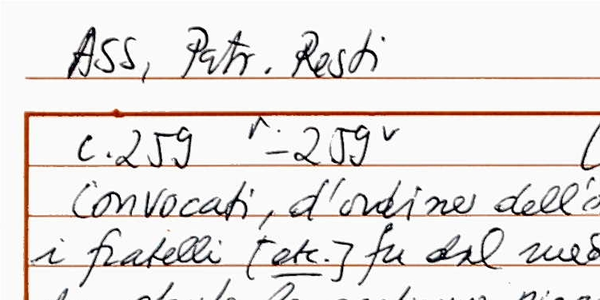 ASS, Patr. Resti
c. 259 r.–259 v
Convocati, d'ordine dell'
i fratelli [etc.] fu dal